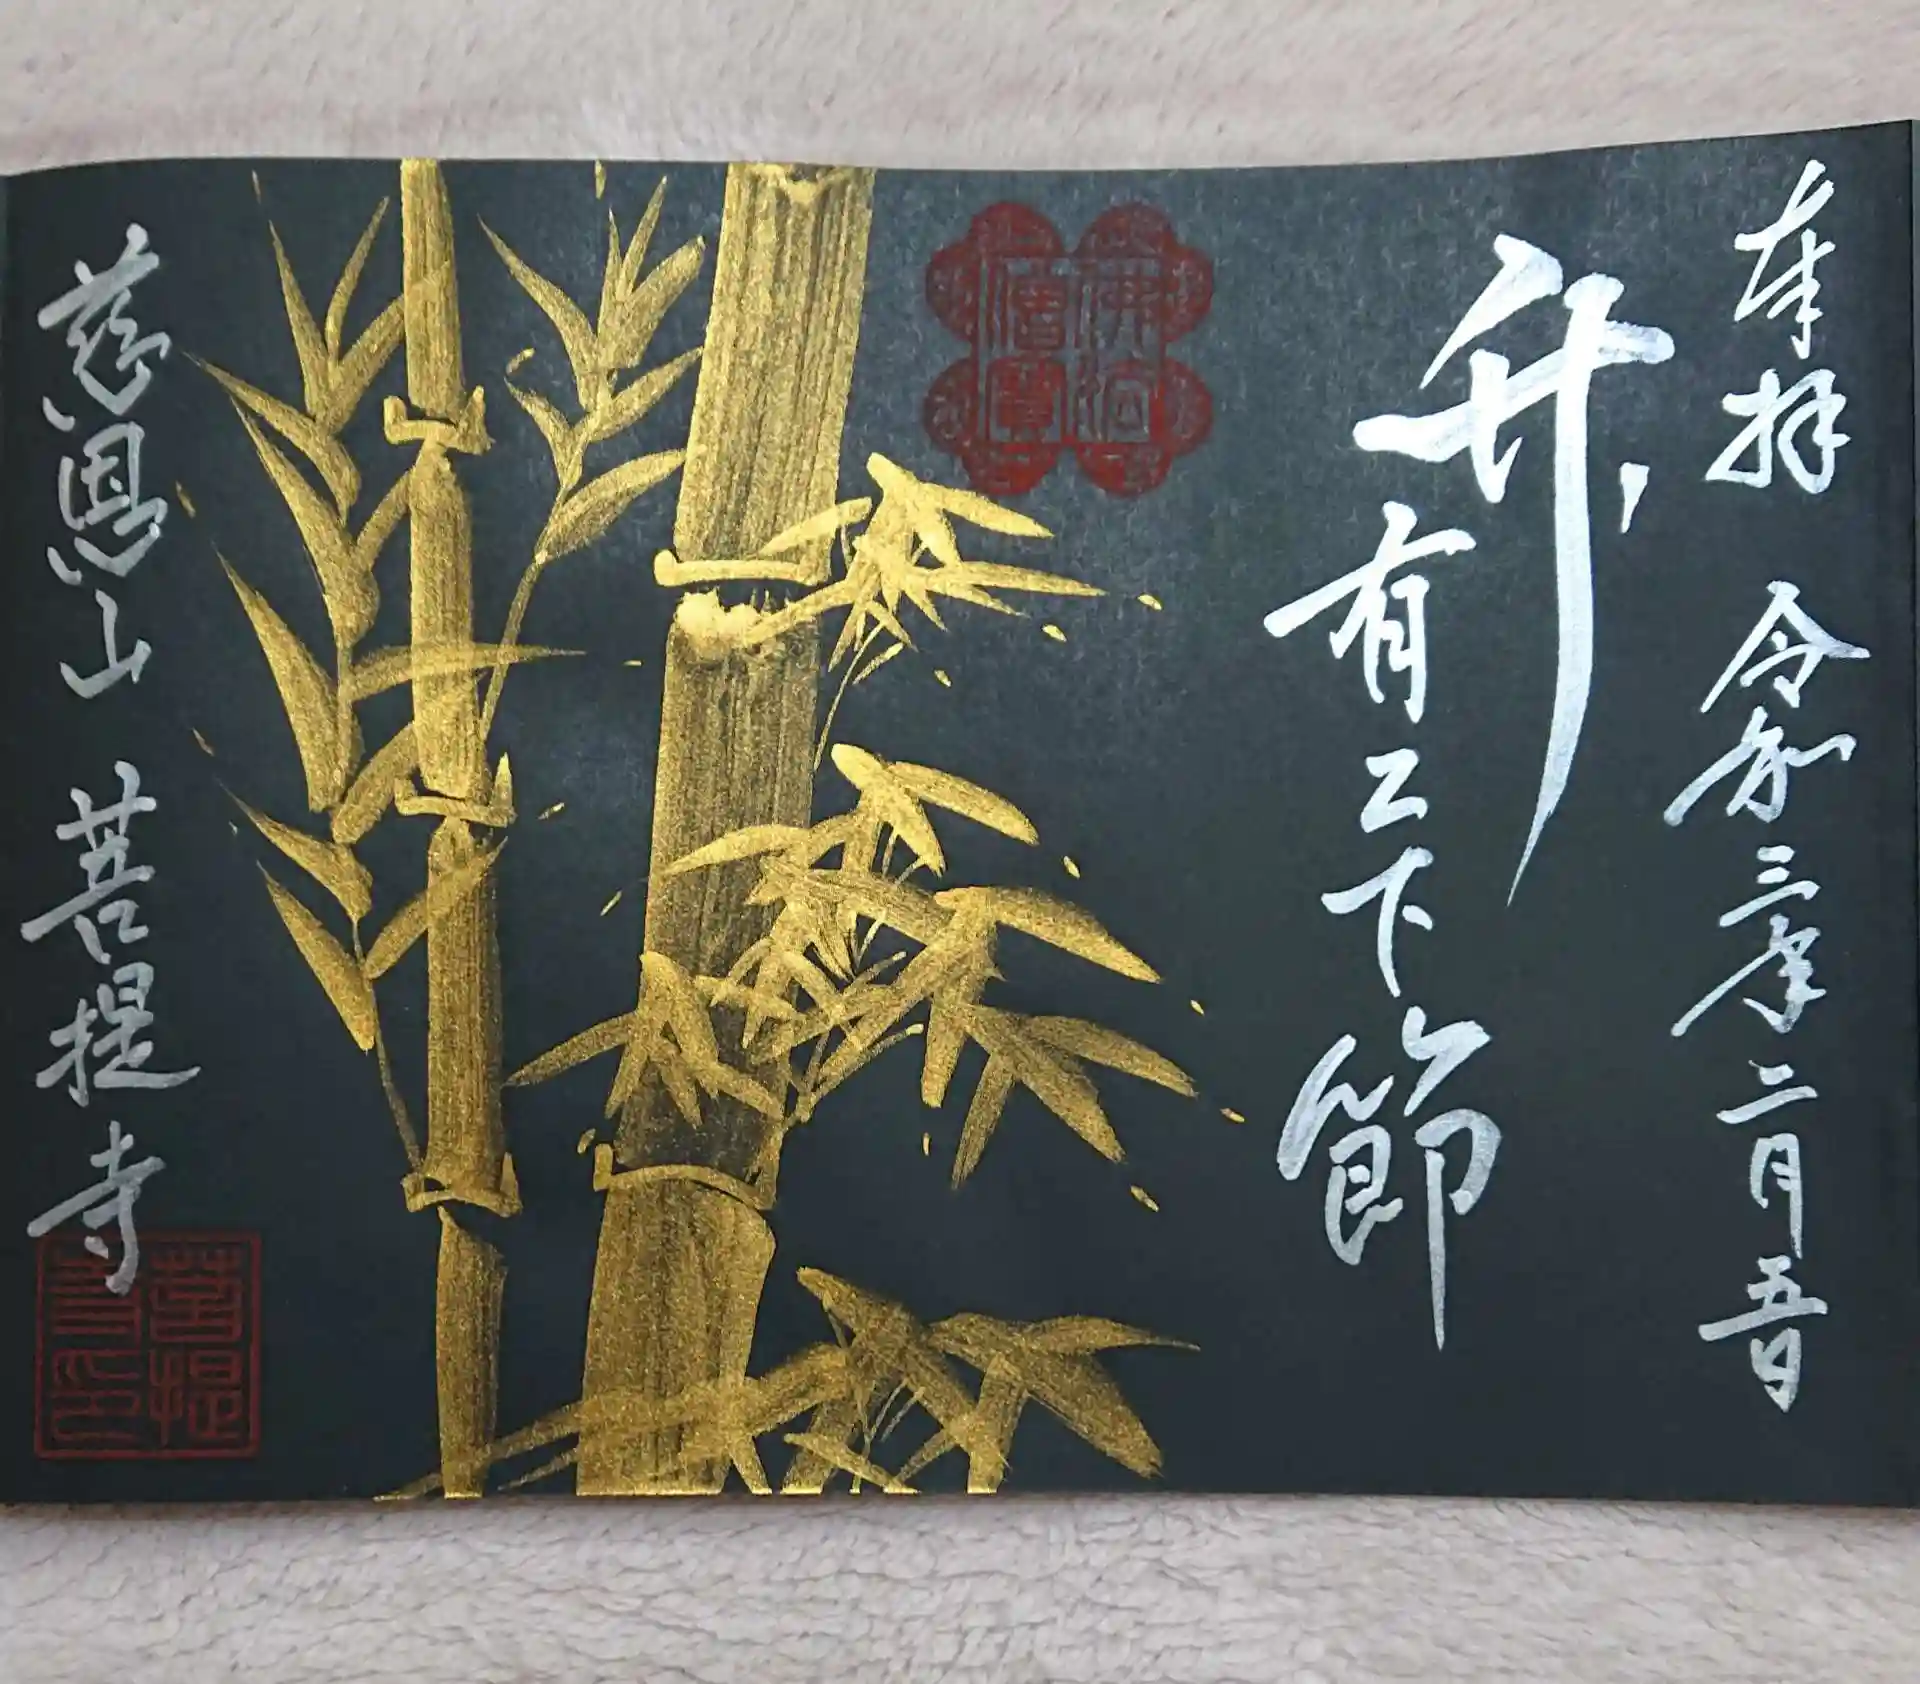 奉拝 令和三年二月五日
竹有上下節
佛法僧寶
慈恩山 菩提寺
菩提寺印